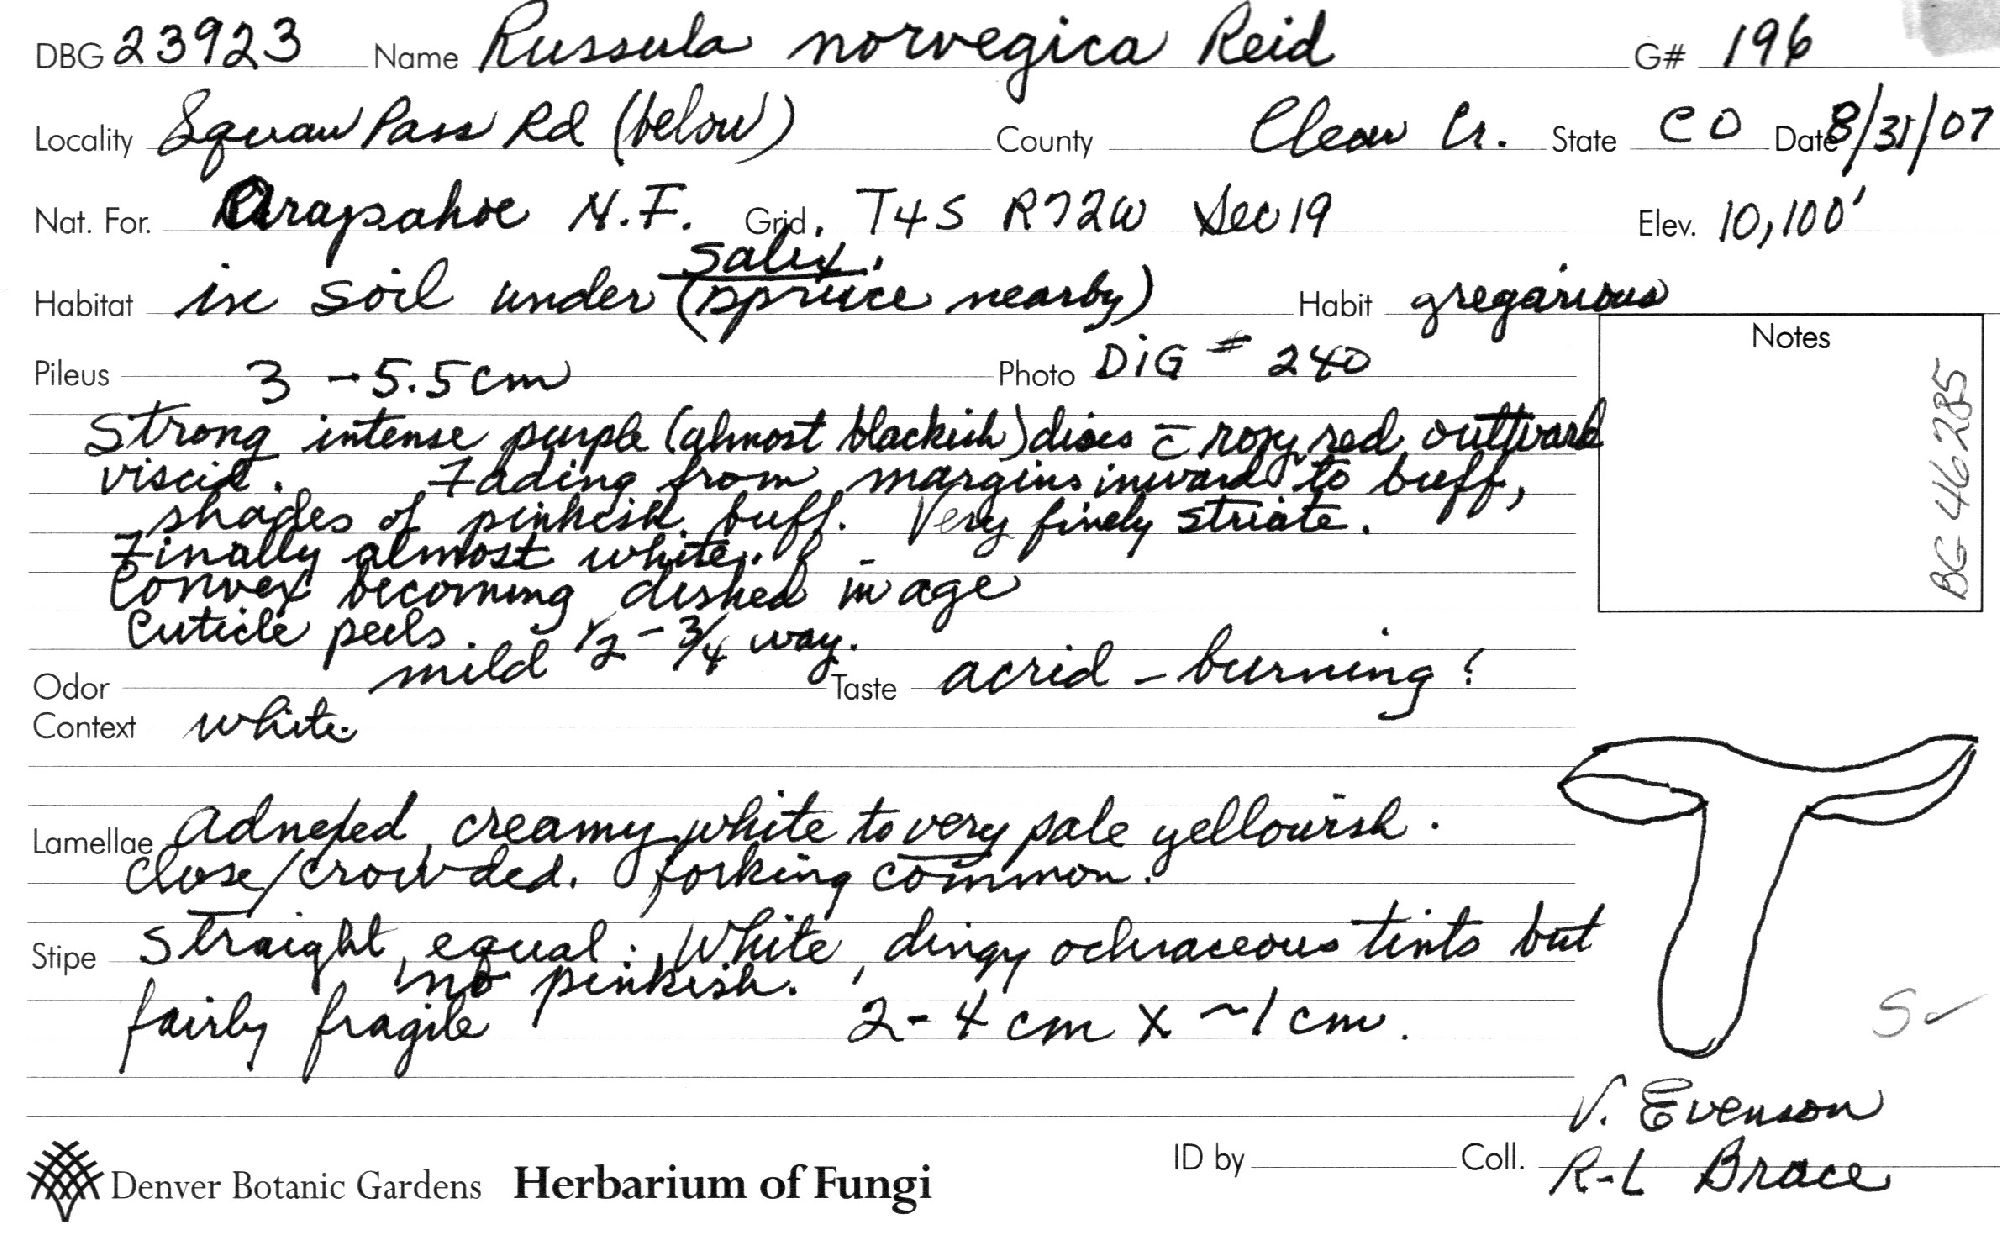 DBG 23923 Name Russula norvegica Reid G# 196
Locality Squaw Pass Rd (below) County Clear Cr. State CO Date 8/31/07
Nat. For. Arapahoe N.F. Grid. T4S R72W Sec 19 Elev. 10,100'
Salix,
Habitat in soil under (spruce nearby) Habit gregarious
Notes
Pileus 3 - 5.5 cm Photo DiG # 240
BG 46285
Strong intense purple (almost blackish) discs c̄ rosy red outward
viscid. Fading from margins inward to buff,
shades of pinkish buff. Very finely striate.
Finally almost white.
Convex becoming dished in age
Cuticle peels 1/2 - 3/4 way.
Odor mild Taste acrid - burning!
Context white.
Lamellae adnexed, creamy white to very pale yellowish.
close/crowded. forking common.
Stipe straight, equal. White, dingy ochraceous tints but
no pinkish.
fairly fragile 2-4 cm X ~1 cm.
S✓
V. Evenson
ID by Coll. R-L Brace
Denver Botanic Gardens Herbarium of Fungi